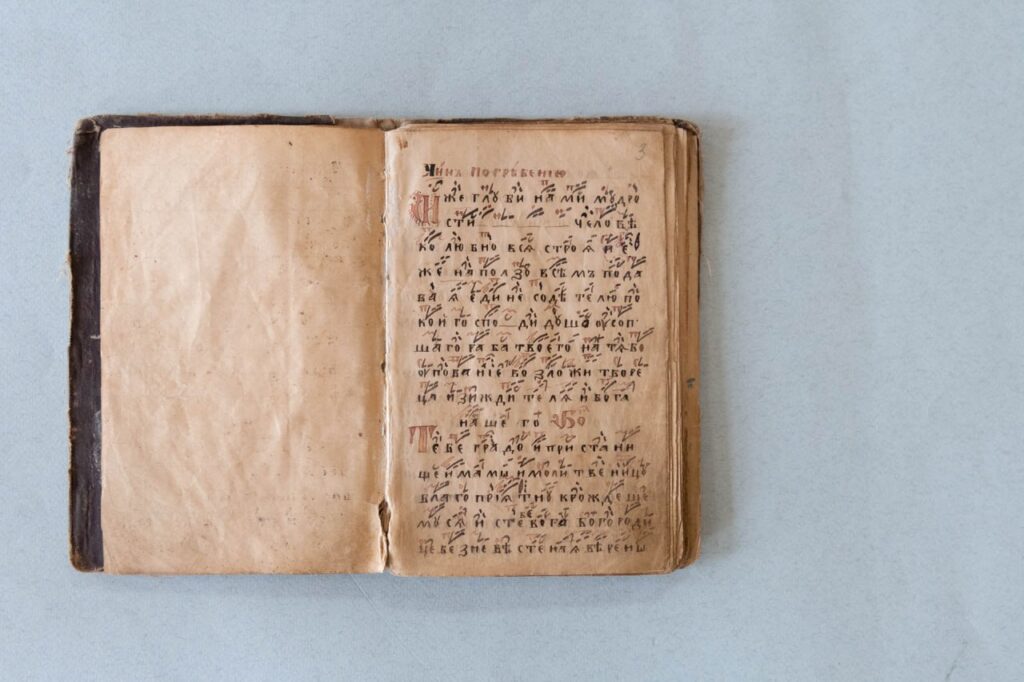 3
Чинъ погребенїю
Иже глубинами мудро
сти человѣ
колюбно вся строя и е
же на ползо всѣмъ пода
ва я едине содѣтелю по
кой госпо ди душа оусоп
шаго раба твоего на тя бо
оупованїе возложи творе
ца и зиждителя и бога
нашего
Тебе градо и пристани
ще имамы и молитвеницо
благопрїятну к рождеше
муся и с тебе бога богороди
це безневѣстеная вѣрены